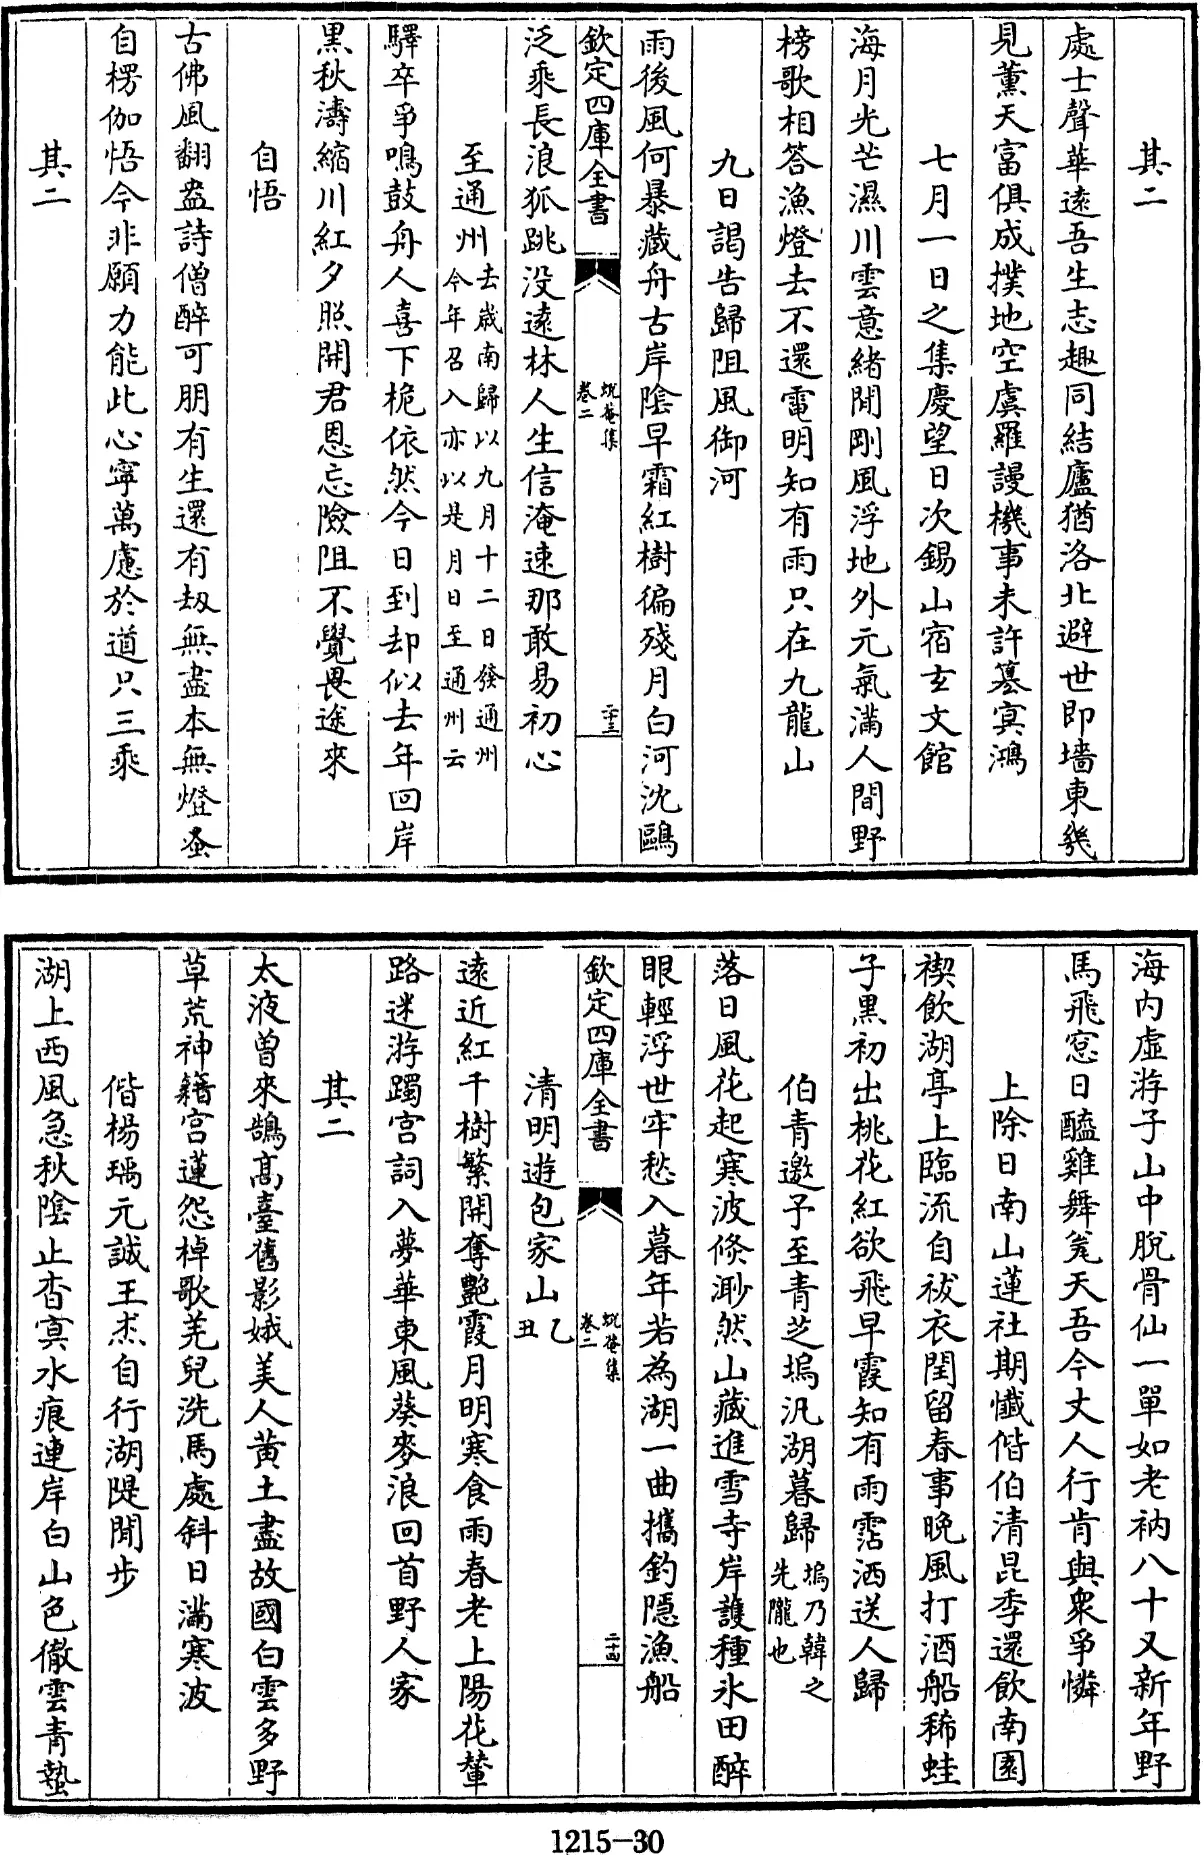 其二
處士聲華遠吾生志趣同結廬猶洛北避世即墻東幾
見薰天富俱成撲地空虞羅謾機事未許篡冥鴻
七月一日之集慶望日次錫山宿玄文館
海月光芒濕川雲意緒閒剛風浮地外元氣滿人間野
榜歌相答漁燈去不還電明知有雨只在九龍山
九日謁告歸阻風御河
雨後風何暴藏舟古岸陰早霜紅樹徧殘月白河沈鷗
欽定四庫全書
蛻菴集
卷二
二十三
泛乘長浪狐跳没遠林人生信淹速那敢易初心
至通州去歲南歸以九月十二日發通州
今年召入亦以是月日至通州云
驛卒爭鳴鼓舟人喜下桅依然今日到却似去年回岸
黒秋濤縮川紅夕照開君恩忘險阻不覺畏途來
自悟
古佛風翻盎詩僧醉可朋有生還有刼無盡本無燈蚤
自楞伽悟今非願力能此心寧萬慮於道只三乘
其二
海内虛游子山中脫骨仙一單如老衲八十又新年野
馬飛窓日醯雞舞甕天吾今丈人行肯與衆爭憐
上除日南山蓮社期懺偕伯清昆季還飲南園
禊飲湖亭上臨流自祓衣閏留春事晩風打酒船稀蛙
子黒初出桃花紅欲飛早霞知有雨霑洒送人歸
伯青邀予至青芝塢汎湖暮歸塢乃韓之
先隴也
落日風花起寒波倐渺然山藏進雪寺岸護種氷田醉
眼輕浮世牢愁入暮年若為湖一曲攜釣隱漁船
欽定四庫全書
蛻菴集
卷二
二十四
清明遊包家山乙
丑
遠近紅千樹繁開奪艶霞月明寒食雨春老上陽花輦
路迷游躅宫詞入夢華東風葵麥浪回首野人家
其二
太液曾來鵠髙臺舊影娥美人黄土盡故國白雲多野
草荒神籍宫蓮怨棹歌羌兒洗馬處斜日滿寒波
偕楊瑀元誠王杰自行湖隄閒步
湖上西風急秋陰止杳冥水痕連岸白山色徹雲青蟄
1215-30